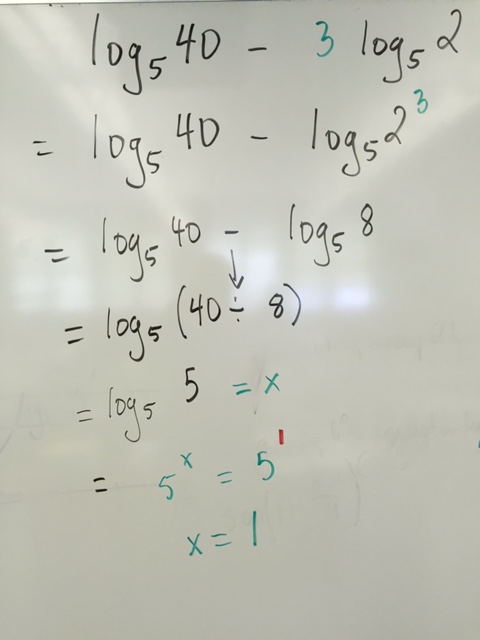 log₅ 40 - 3 log₅ 2
= log₅ 40 - log₅ 2³
= log₅ 40 - log₅ 8
↓
= log₅ (40 ÷ 8)
= log₅ 5 = x
= 5ˣ = 5¹
x = 1